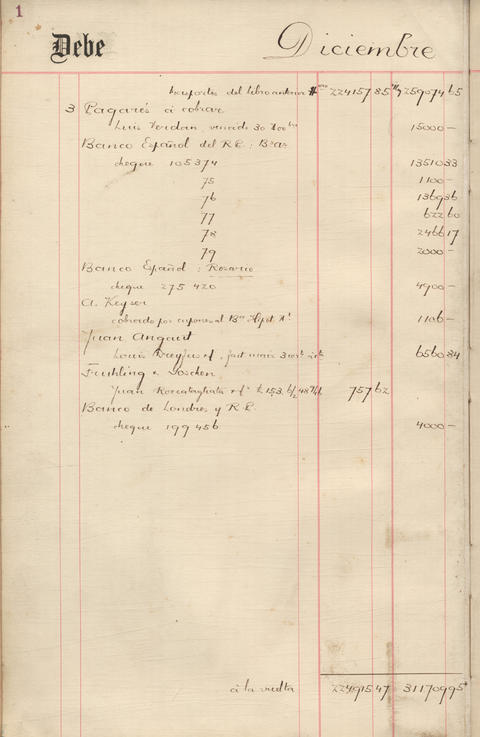 1
Debe Diciembre
Importes del libro anterior 22415785 25907465
3 Pagarés á cobrar
Luis Verdan, vencido 30 Nov 15000 —
Banco Español del R.P.: Bs As
cheque 105374 1351033
75 1100 —
76 136936
77 62260
78 246617
79 2000 —
Banco Español: Rosario
cheque 275420 4900 —
A. Keyser
cobrado por 1106 —
Juan
Louis Dreyfus 656084
Fruhling & Goschen
Juan £ 153. 75762
Banco de Londres y R.P.
cheque 199456 4000 —
á la vuelta 22491547 31170995